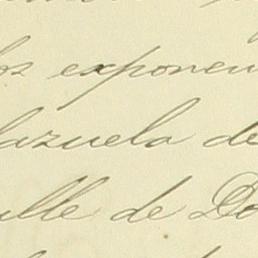 los exponen
lazuela de
alle de Do